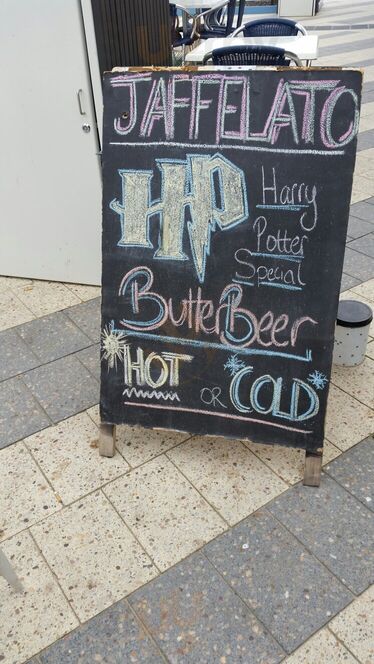 JAFFELATO
HP
Harry
Potter
Special
ButterBeer
HOT OR COLD